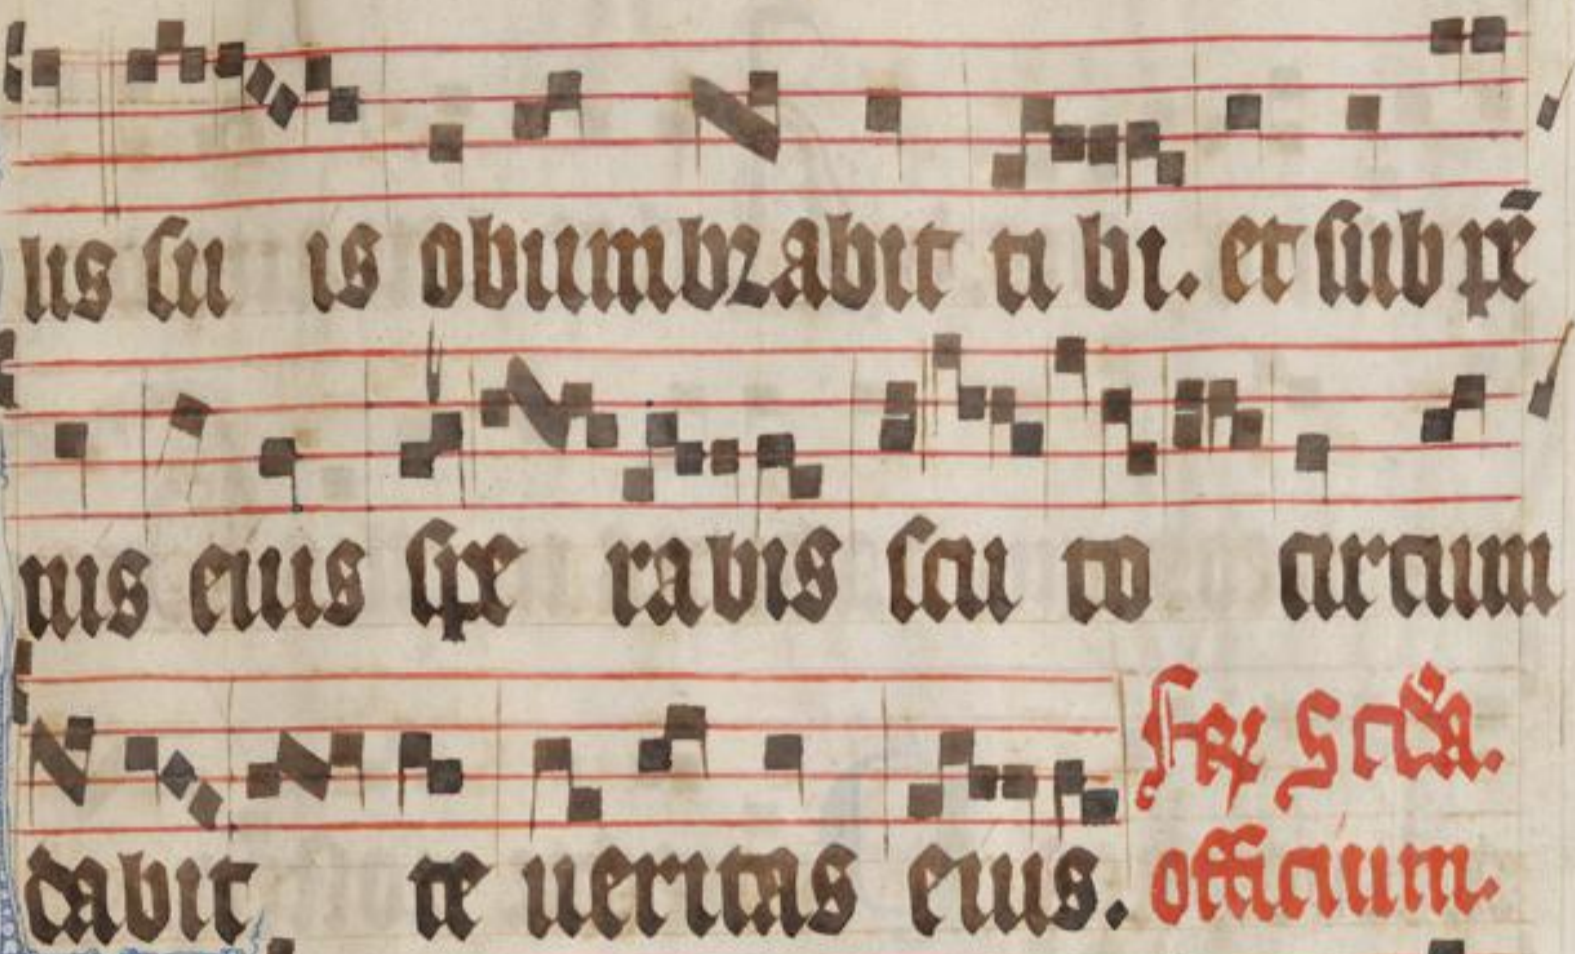 lis su is obumbrabit ti bi. et sub pē
nis eius spe rabis scu to circum
dabit te ueritas eius.
officium.